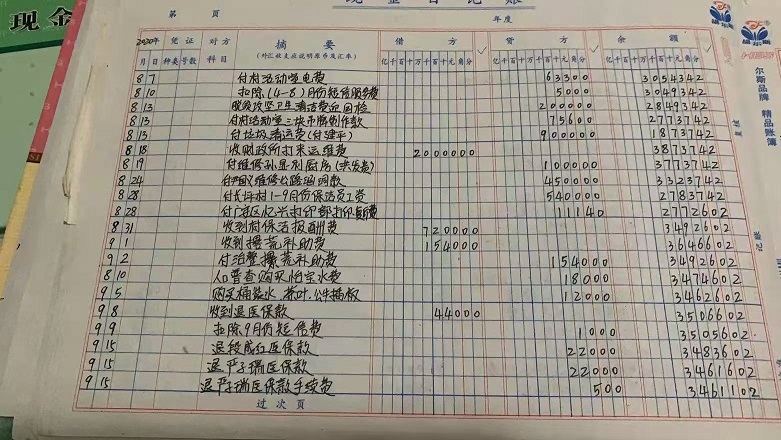 现金日记账
现金
第 页
年度
2020年 凭证 对方 摘要 借方 贷方 余额
月 日 种类 号数 科目 (外汇收支应说明原币及汇率) 亿千百十万千百十元角分 亿千百十万千百十元角分 亿千百十万千百十元角分
8 7 付村活动室电费 63300 3054342
8 10 扣除(4-8)月份短信服务费 5000 3049342
8 13 脱贫攻坚卫生清洁费迎国检 200000 2849342
8 13 付村活动室三块吊牌制作款 75600 2773742
8 13 付垃圾清运费(付建平) 900000 1873742
8 18 收财政所打来运维费 2000000 3873742
8 19 付维修孙显利厨房 100000 3773742
8 24 维修公路 款 450000 3323742
8 28 付长丹村1-9月份保洁员工资 540000 2783742
8 28 付 区忆兴打印部打印 费 11140 2772602
8 31 收到村保洁报酬费 720000 3492602
9 1 收到撂荒补助费 154000 3646602
9 2 付治整撂荒补助费 154000 3492602
8 10 人口普查购买怡宝水费 18000 3474602
9 5 购买桶装水 茶叶.公牛插板 12000 3462602
9 8 收到退医保款 44000 3506602
9 9 扣除9月份短信费 1000 3505602
9 15 退段成红医保款 22000 3483602
9 15 退严子瑞医保款 22000 3461602
9 15 退严子瑞医保款手续费 500 3461102
过次页
尔斯品牌 精品账簿